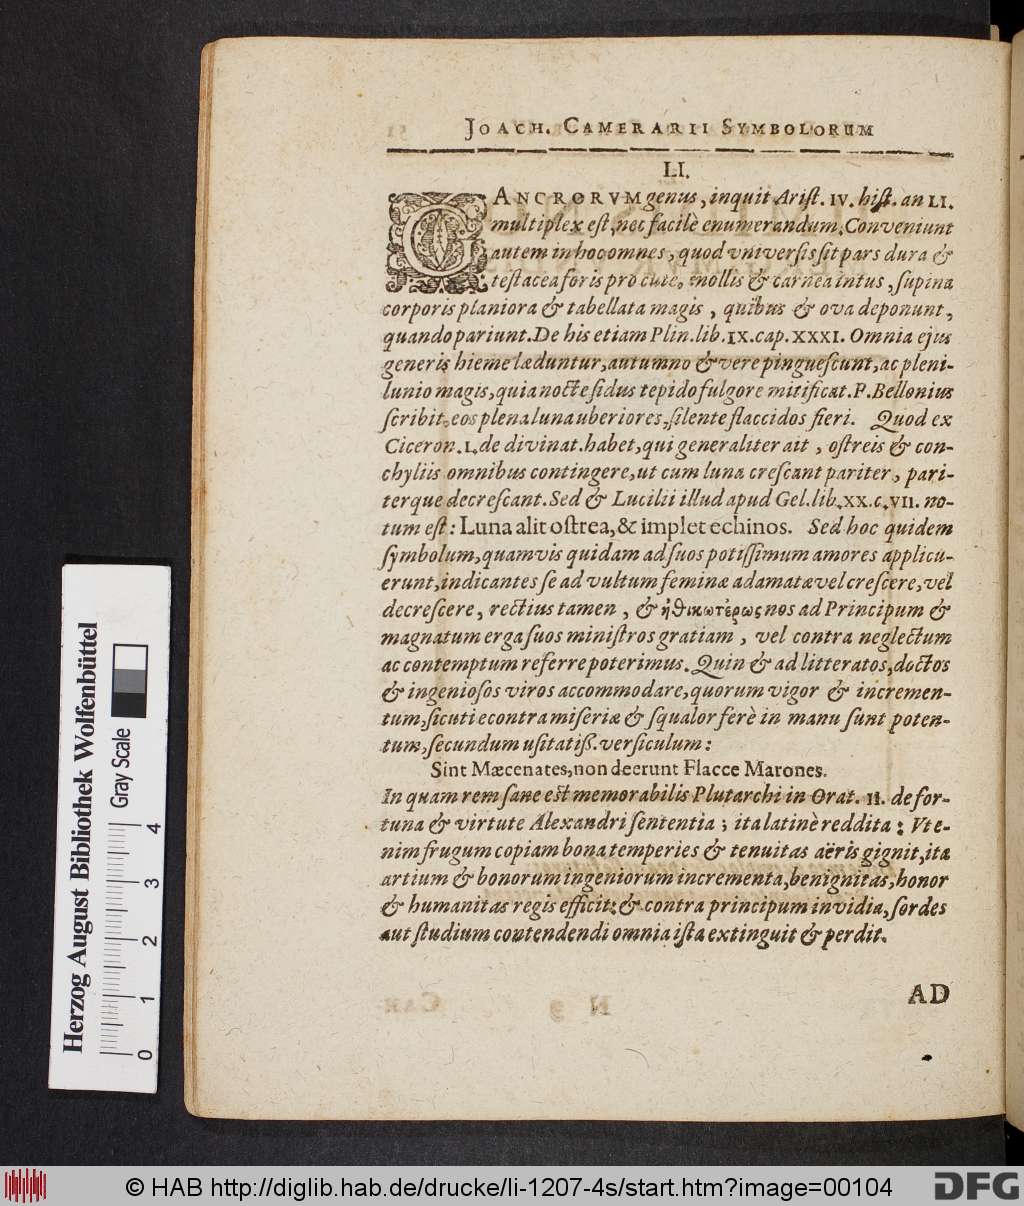 JOACH. CAMERARII SYMBOLORUM
LI.
CANCRORVM genus, inquit Arist. IV. hist. an LI.
multiplex est, nec facilè enumerandum. Conveniunt
autem in hoc omnes, quod vniversis sit pars dura &
testacea foris pro cute, mollis & carnea intus, supina
corporis planiora & tabellata magis, quibus & ova deponunt,
quando pariunt. De his etiam Plin. lib. IX. cap. XXXI. Omnia ejus
generis hieme læduntur, autumno & vere pinguescunt, ac pleni-
lunio magis, quia nocte sidus tepido fulgore mitificat. P. Bellonius
scribit, eos plena luna uberiores, silente flaccidos fieri. Quod ex
Ciceron. I. de divinat. habet, qui generaliter ait, ostreis & con-
chyliis omnibus contingere, ut cum luna crescant pariter, pari-
terque decrescant. Sed & Lucilii illud apud Gel. lib. XX. c. VII. no-
tum est: Luna alit ostrea, & implet echinos. Sed hoc quidem
symbolum, quamvis quidam ad suos potissimum amores applicu-
erunt, indicantes se ad vultum feminæ adamatæ vel crescere, vel
decrescere, rectius tamen, & ἠθικωτέρως nos ad Principum &
magnatum erga suos ministros gratiam, vel contra neglectum
ac contemptum referre poterimus. Quin & ad litteratos, doctos
& ingeniosos viros accommodare, quorum vigor & incremen-
tum, sicuti econtra miseriæ & squalor ferè in manu sunt poten-
tum, secundum usitatiß. versiculum:
Sint Mæcenates, non deerunt Flacce Marones.
In quam rem sane est memorabilis Plutarchi in Orat. II. de for-
tuna & virtute Alexandri sententia; ita latinè reddita: Vt e-
nim frugum copiam bona temperies & tenuitas aëris gignit, ita
artium & bonorum ingeniorum incrementa, benignitas, honor
& humanitas regis efficit: & contra principum invidia, sordes
aut studium contendendi omnia ista extinguit & perdit.
AD
Herzog August Bibliothek Wolfenbüttel
Gray Scale
0 1 2 3 4
© HAB http://diglib.hab.de/drucke/li-1207-4s/start.htm?image=00104
DFG